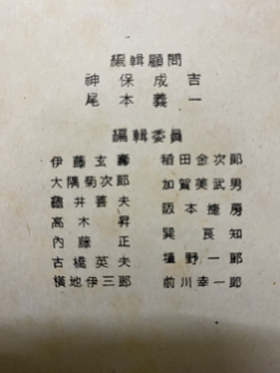 編輯顧問
神保成吉
尾本義一
編輯委員
伊藤玄壽 植田金次郎
大隅菊次郎 加賀美武男
龜井善夫 阪本捷房
高木昇 巽良知
內藤正 埴野一郎
古橋英夫 前川幸一郎
横地伊三郎